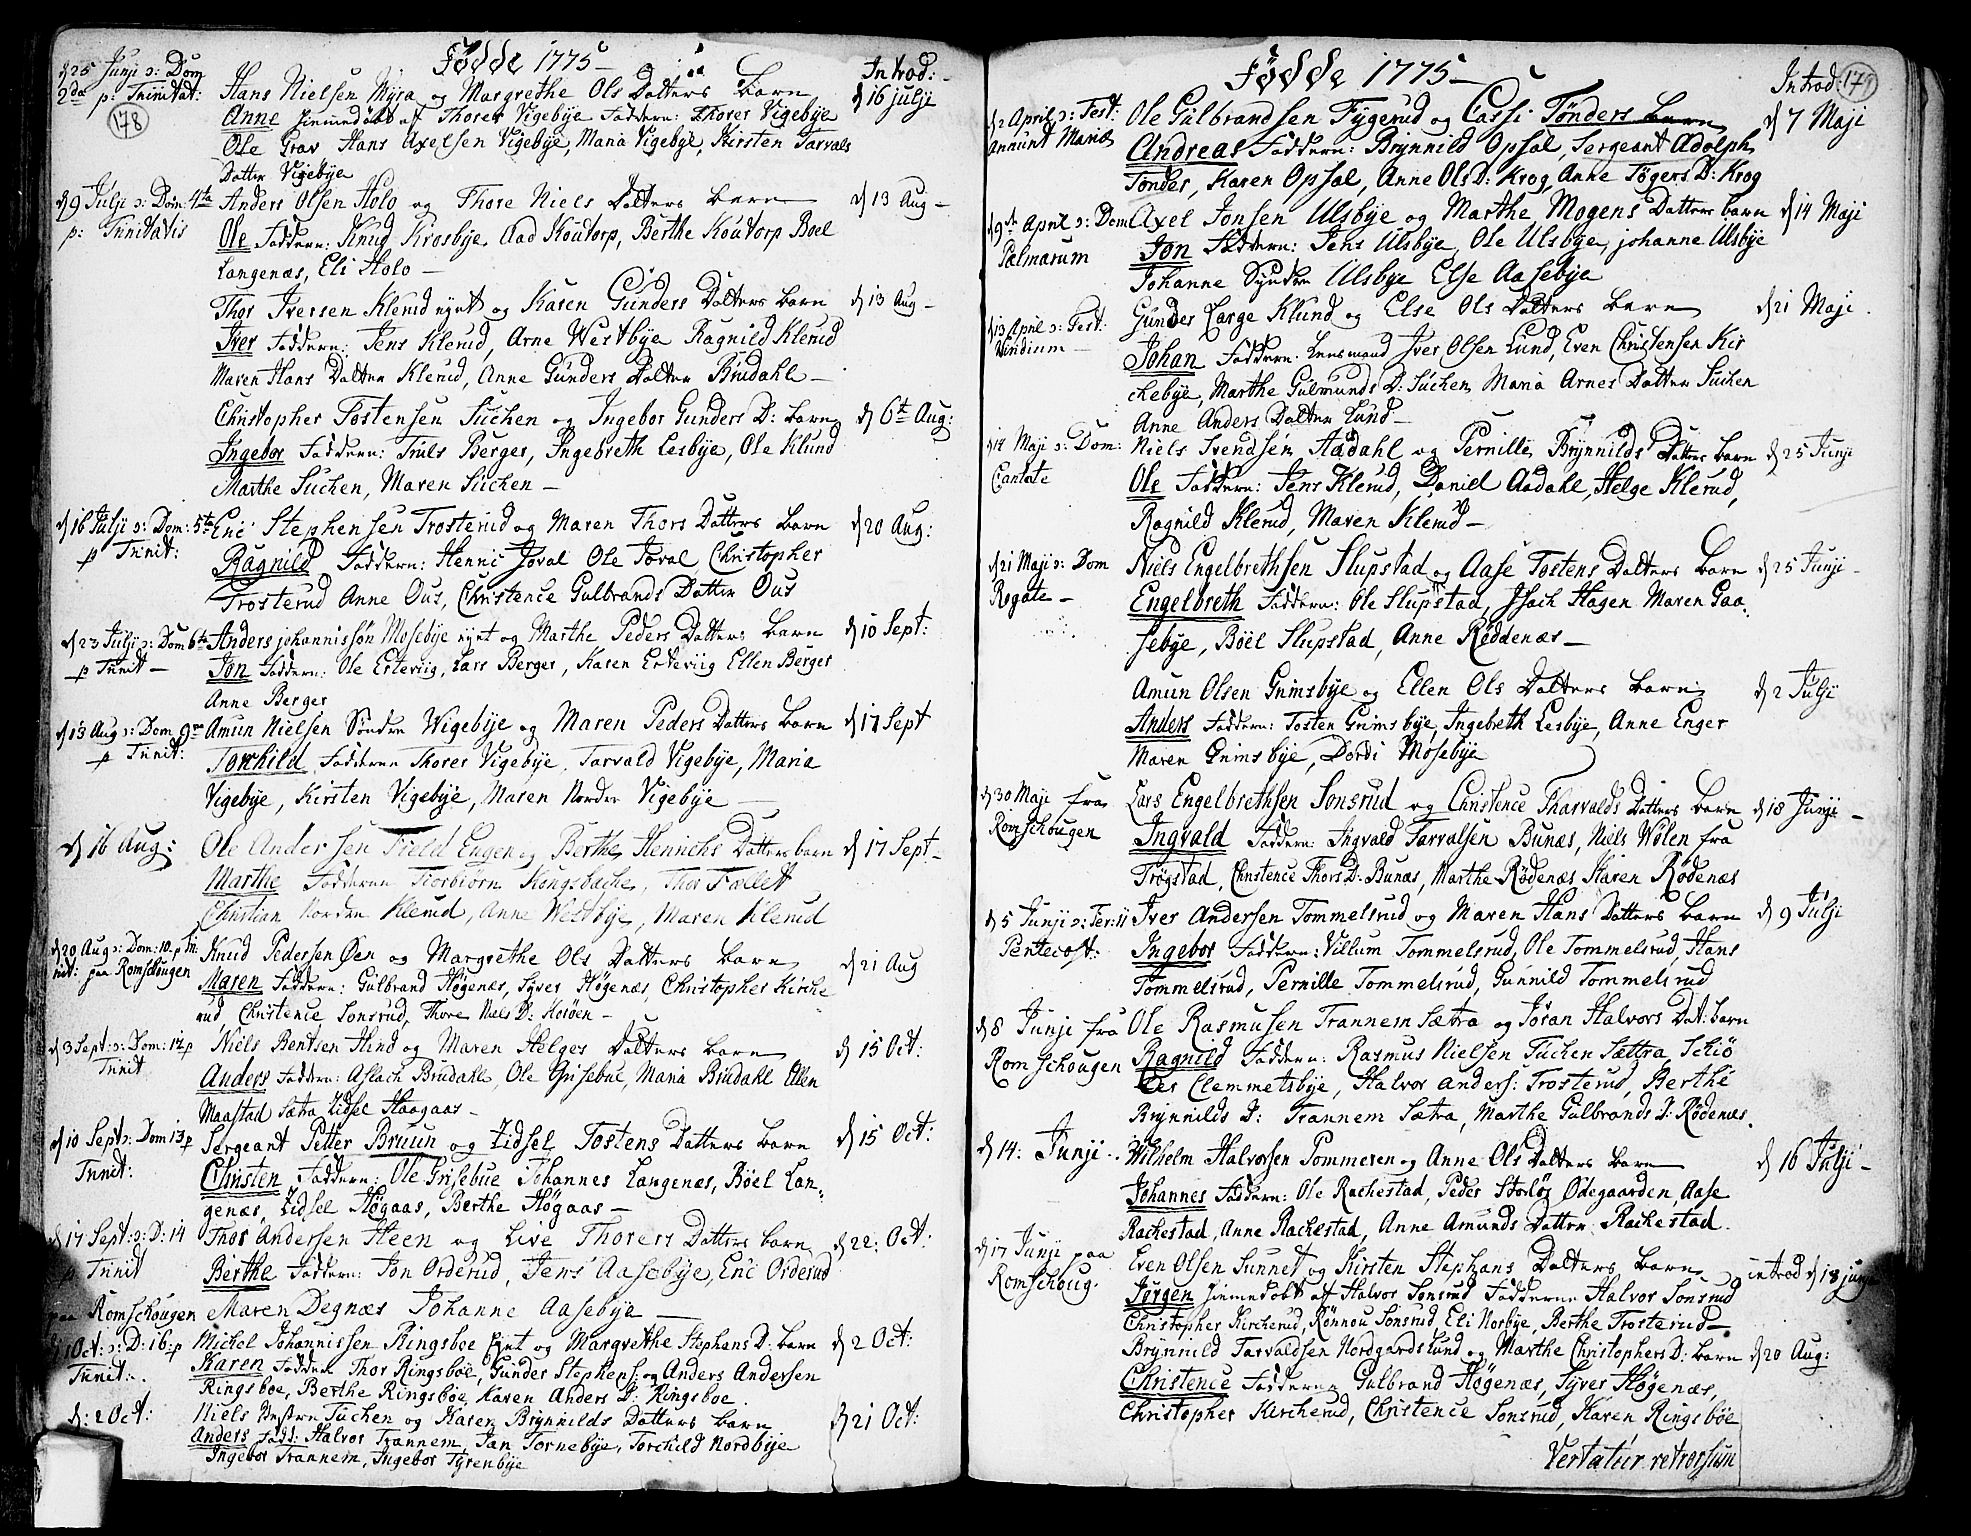 Fødde 1775 –
Introd: –
178
d 25 Junji ɔ: Dom
2da p: Trinitat:
Hans Nielsen Myra og Margrethe Ols Datters Barn
d 16 julji
Anne hiemedøbt af Thorer Vigebye Faddern: Thorer Vigebye
Ole Grav Hans Axelsen Vigebye, Maria Vigebye, Kirsten Tarvals
Datter Vigebye
d 9 Julji ɔ: Dom: 4ta
p: Trinitatis
Anders Olsen Holo og Thore Niels Datters Barn
d 13 Aug –
Ole Faddern: Knud Krosbye, Aad Koutorp, Berthe Koutorp Boel
Langenæs, Eli Holo –
Thor Iversen Klerud eynt og Karen Gunders Datters barn
d 13 Aug –
Iver Faddern: Jens Klerud, Arne Westbye Ragnild Klerud
Maren Hans Datter Klerud, Anne Gunders Datter Brudahl –
Christopher Tostensen Tuchen og Ingebor Gunders D: barn
d 6t Aug:
Ingebor Faddern: Truls Berger, Ingebreth Lesbye, Ole Klund
Marthe Tuchen, Maren Tuchen –
d 16 Julji ɔ: Dom: 5ta
p Trinit:
Eric Stephensen Trosterud og Maren Thors Datters Barn
d 20 Aug:
Ragnild Faddern: Henni Joval Ole Joval, Christopher
Trosterud Anne Ous, Christence Gulbrands Datter Ous
d 23 Julji ɔ: Dom 6ta
p Trinit –
Anders johannissøn Mosebye eynt og Marthe Peders Datters barn
d 10 Sept:
Jon Faddern: Ole Erteviig, Lars Berger, Karen Erteviig Ellen Berger
Anne Berger
d 13 Aug ɔ: Dom 9na
p Trinit:
Amun Nielsen Søndre Wigebye og Maren Peders Datters barn
d 17 Sept
Torchild Fadderne Thorer Vigebye, Tarvald Vigebye, Maria
Vigebye, Kirsten Vigebye, Maren Nordre Vigebye –
d 16 Aug:
Ole Andersen Field Engen og Berthe Henrichs Datters barn
d 17 Sept –
Marthe Fadderne Torbiørn Kongsbache, Thor Follet
Christian Norden Klerud, Anne Westbye, Maren Klerud
d 20 Aug ɔ: Dom: 10. p Tri:
nit: paa Romschougen
Knud Pedersen Øen og Margrethe Ols Datters barn
d 21 Aug
Maren Faddern: Gulbrand Høgenæs, Syver Høgenæs, Christopher Kirche
rud, Christence Sonsrud, Thore Niels D: Holøen –
d 3 Sept: ɔ: Dom: 12 p
Trinit
Niels Bentsen Hind og Maren Helges Datters barn
d 15 Oct:
Anders Faddern: Aslach Brudahl, Ole Grisebue, Maria Brudahl Ellen
Maastad Sætra Zidsel Haagaas –
d 10 Sept ɔ: Dom 13 p
Trinit:
Sergeant Petter Bruun og Zidsel Tostens Datters barn
d 15 Oct:
Christen Faddern: Ole Grisebue Johannes Langenæs, Böel Lan-
genæs, Zidsel Høgaas, Berthe Høgaas –
d 17 Sept: ɔ: D: 14
p Trinit
paa Romschougen
Thor Andersen Heen og Live Thorers Datters barn
d 22: Oct:
Berthe Faddern: Jon Orderud, Jens Aasebye, Eric Orderud
Maren Degnæs Johanne Aasebye –
d 1 Oct: ɔ: D: 16: p
Trinit:.
Michel Johannissen Ringsboe eynt og Margrethe Stephans D: barn
d 2 Oct:
Karen Faddern Thor Ringsboe, Gunder Stephens: og Anders Andersen
Ringsboe, Berthe Ringsboe, Karen Anders D: Ringsboe.
d: 2 Oct:
Niels Westre Tuchen og Karen Brynnilds Datters barn
d 21 Oct:
Anders Fadd: Halvor Trannem, Jan Tornebye, Torchild Nordbye
Ingebor Trannem, Ingebor Tyrenbye
Fødde 1775 –
Introd:
179
d 2 April ɔ: Fest:
Annunt Mariæ
Ole Gulbrandsen Tygerud og Cassi Tønders barn
d 7 Maji
Andreas Faddern: Brynnild Opsal, Sergeant Adolph
Tønder, Karen Opsal, Anne Ols D: Krog, Anne Tøgers D: Krog
d 9de April ɔ: Dom
Palmarum
Axel Jonsen Ulsbye og Marthe Mogens Datters barn
d 14 Maji
Jon Faddern: Jens Ulsbye, Ole Ulsbye, johanne Ulsbye
Johanne Syndre Ulsbye Else Aasebye
d 13 April ɔ: Fest:
Viridium –
Gunder Large Klund og Else Ols Datters barn
d 21 Maji.
Johan Faddern. Lensmand Iver Olsen Lund, Even Christensen Kir
chebye, Marthe Gulmunds D: Tuchen, Maria Arnes Datter Tuchen
Anne Anders Datter Lund –
d 14 Maji ɔ: Dom:
Cantate
Niels Svendsen Aadahl og Pernille Brynnilds Datters barn
d 25 Junji
Ole Faddern: Jens Klerud, Daniel Aadahl, Helge Klerud,
Ragnild Klerud, Maren Klerud –
d 21 Maji ɔ: Dom
Rogate –
Niels Engelbrethsen Slupstad og Aase Tostens Datters Barn
d 25 Junji –
Engelbreth Faddern: Ole Slupstad, Isach Hagen Maren Gaa
sebye, Böel Slupstad, Anne Røddenæs –
Amun Olsen Grimsbye og Ellen Ols Datters barn
d 2 Julji
Anders Faddern: Tosten Grimsbye, Ingebreth Lesbye, Anne Enger
Maren Grimsbye, Dordi Mosebye
d 30 Maji fra
Romschougen
Lars Engelbrethsen Sonsrud og Christence Tharvalds Datters barn
d 18 Junji –
Ingvald Faddern: Ingvald Tarvalsen Bunæs, Niels Wølen fra
Trøgstad, Christence Thors D: Bunæs, Marthe Rødenæs Karen Rødenæs
d 5 Junji ɔ: Fer: 11
Pentecost:
Iver Andersen Tommelsrud og Maren Hans Datters barn
d 9 Julji
Ingebor Faddern: Villum Tommelsrud, Ole Tommelsrud, Hans
Tommelsrud, Pernille Tommelsrud, Gunnild Tommelsrud
d 8 Junji fra
Romschougen
Ole Rasmusen Trannem Sætra og Jøran Halvors Dat: barn
Ragnild Faddern: Rasmus Nielsen Tuchen Sættra, Schiø
der Clemmetsbye, Halvor Anders: Trosterud, Berthe
Brynnilds D: Trannem Sætra, Marthe Gulbrands D: Rødenæs.
d 14: Junji:.
Wilhelm Halvorsen Pommeren og Anne Ols Datters barn
d 16 Julji –
Johannes Faddern: Ole Rachestad, Peder Storløs Ødegaarden, Aase
Rachestad, Anne Rachestad, Anne Amunds Datter Rachestad.
d 17 Junji paa
Romschoug.
Even Olsen Sunnet og Kirsten Stephans Datters Barn
introd d 18 junji
Jørgen hiemedøbt af Halvor Sonsrud Fadderne Halvor Sonsrud
Christopher Kircherud, Rønnou Sonsrud, Eli Norbye, Berthe Trosterud –
Brynnild Tarvaldsen Nordgardslund og Marthe Christophers D: barn
d 20 Aug:
Christence Fadderne Gulbrand Høgenæs, Syver Høgenæs,
Christopher Kircherud, Christence Sonsrud, Karen Ringsböe
Vertatur retrorsum